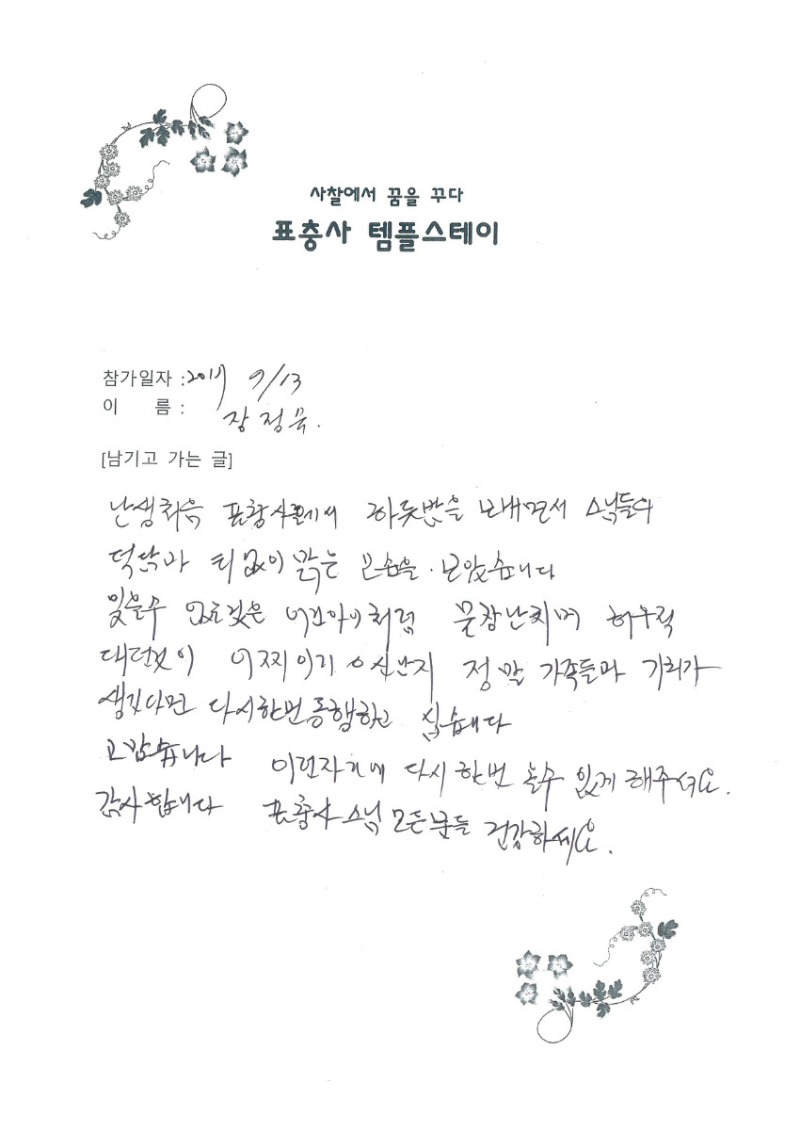 사찰에서 꿈을 꾸다
표충사 템플스테이
참가일자 : 9/13
이 름 : 장정욱.
[남기고 가는 글]
난생처음 표충사에서 하룻밤을 보내면서 스님들의
덕담과 티없이 맑은 모습을 보았습니다
있을수 어린아이처럼 물장난치며 허우적
대던것이 신난지 정말 가족들과 기회가
생긴다면 다시한번 동행하고 싶습니다
고맙습니다 이런자리에 다시 한번 올수 있게 해주셔요.
감사합니다 표충사 스님 모든분들 건강하세요.